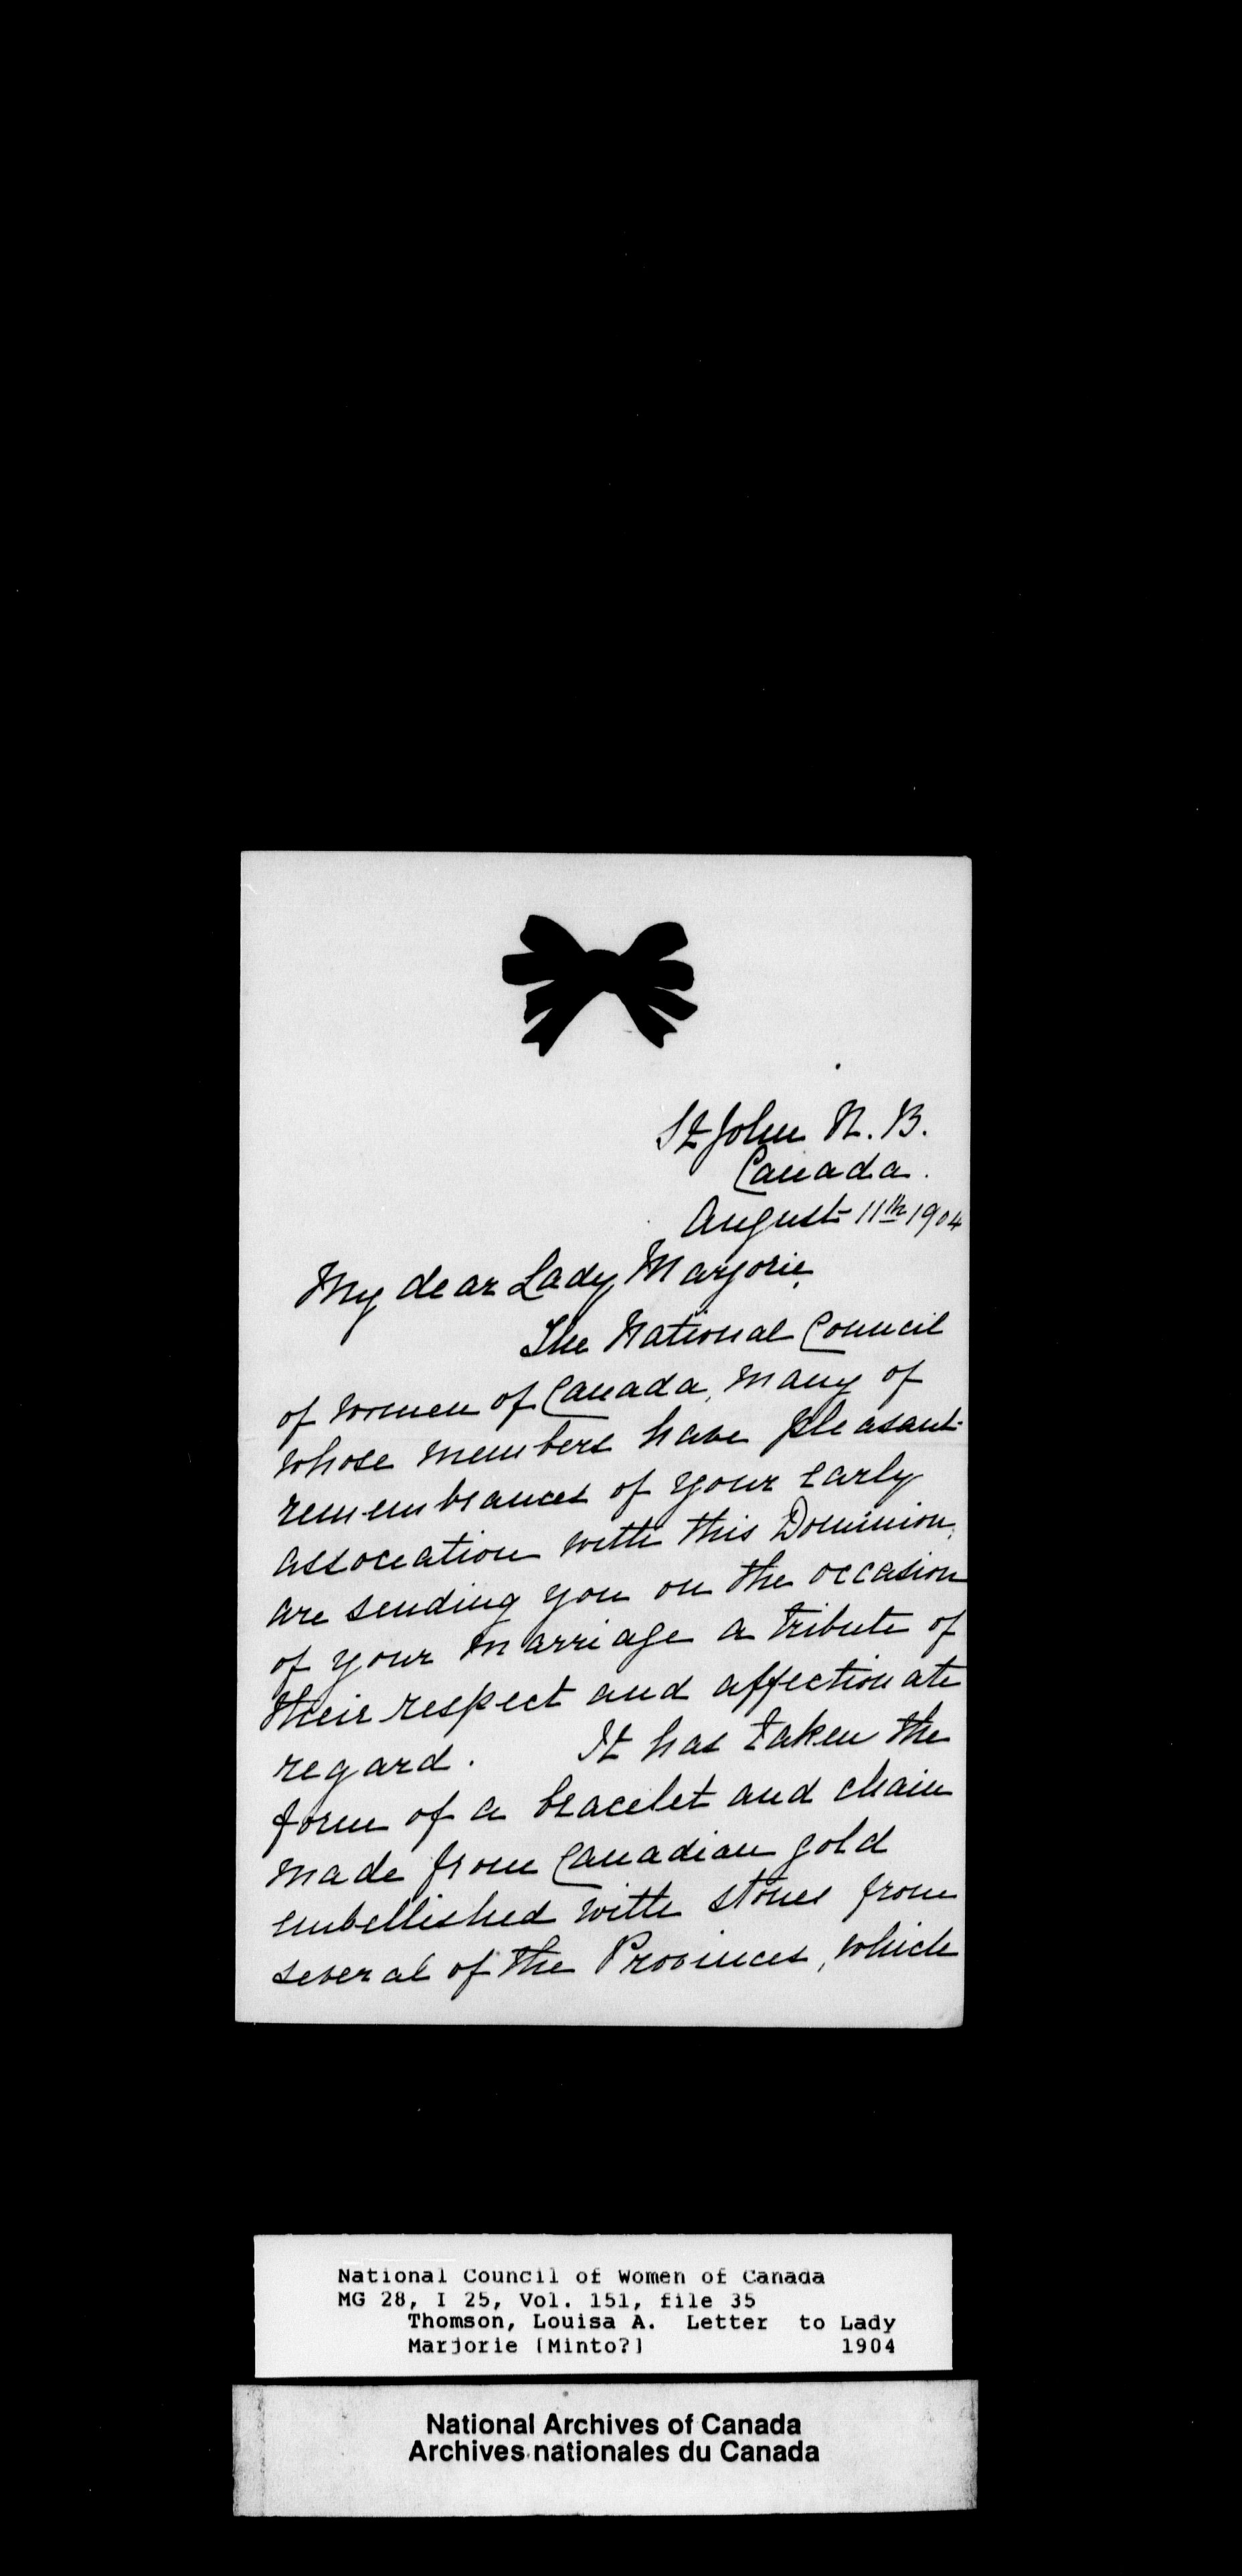 St John N. B.
Canada.
August 11th 1904
My dear Lady Marjorie,
The National Council
of Women of Canada, many of
whose members have pleasant
remembrances of your early
association with this Dominion,
are sending you on the occasion
of your marriage a tribute of
their respect and affectionate
regard. It has taken the
form of a bracelet and chain
made from Canadian gold
embellished with stones from
several of the Provinces, which
National Council of Women of Canada
MG 28, I 25, Vol. 151, file 35
Thomson, Louisa A. Letter to Lady
Marjorie [Minto?] 1904
National Archives of Canada
Archives nationales du Canada